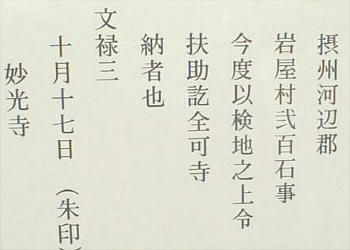 摂州河辺郡
岩屋村弐百石事
今度以検地之上令
扶助訖全可寺
納者也
文禄三
十月十七日 （朱印）
妙光寺